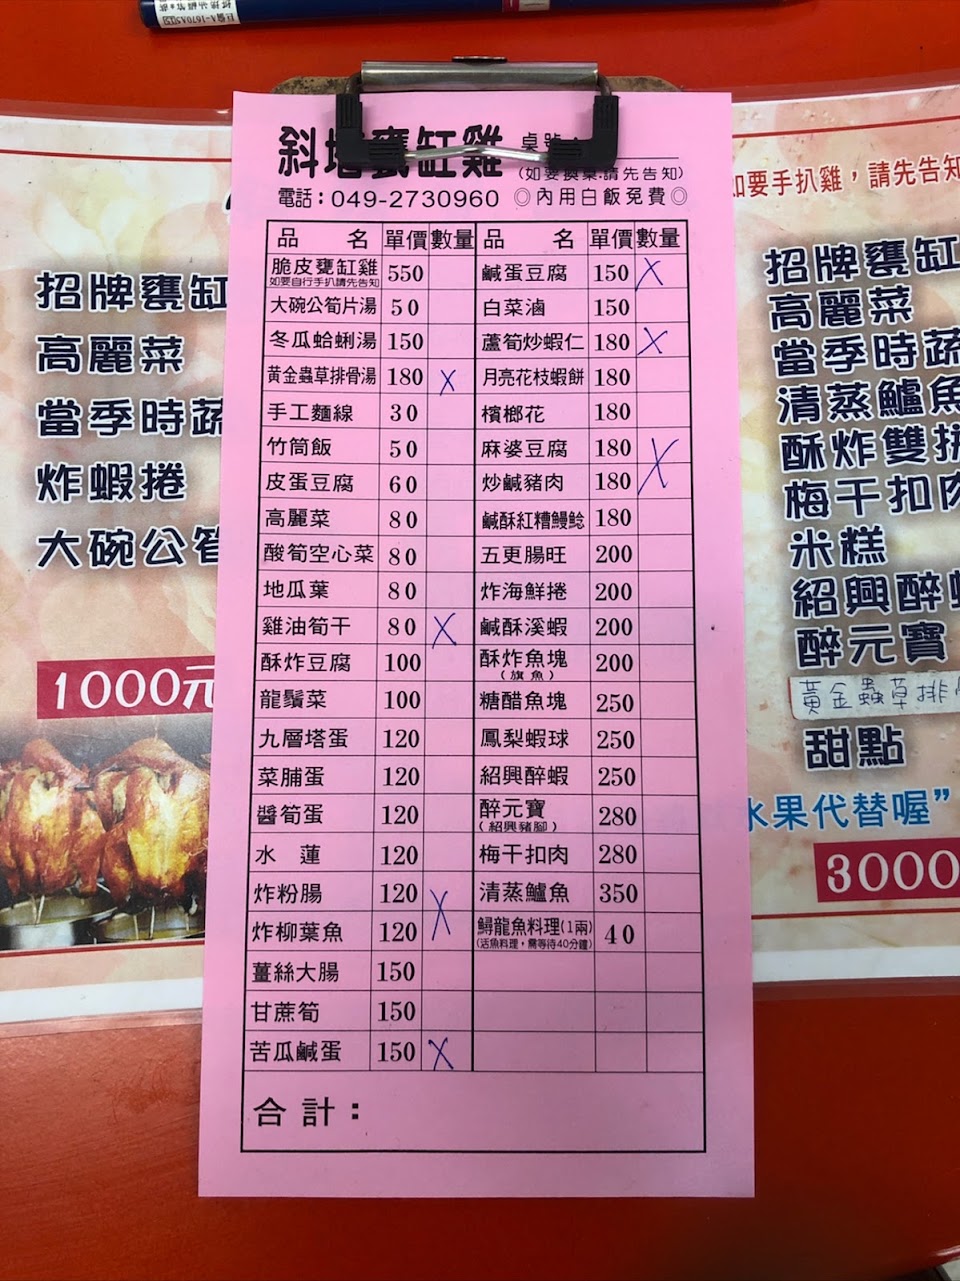 斜坡甕缸雞
桌號：
(如要換桌請先告知)
電話：049-2730960 ◎內用白飯免費◎
品 名 單價 數量 品 名 單價 數量
脆皮甕缸雞 550 鹹蛋豆腐 150 X
如要自行手扒請先告知
大碗公筍片湯 50 白菜滷 150
冬瓜蛤蜊湯 150 蘆筍炒蝦仁 180 X
黃金蟲草排骨湯 180 X 月亮花枝蝦餅 180
手工麵線 30 檳榔花 180
竹筒飯 50 麻婆豆腐 180 X
皮蛋豆腐 60 炒鹹豬肉 180
高麗菜 80 鹹酥紅糟鰻鯰 180
酸筍空心菜 80 五更腸旺 200
地瓜葉 80 炸海鮮捲 200
雞油筍干 80 X 鹹酥溪蝦 200
酥炸豆腐 100 酥炸魚塊 200
(旗魚)
龍鬚菜 100 糖醋魚塊 250
九層塔蛋 120 鳳梨蝦球 250
菜脯蛋 120 紹興醉蝦 250
醬筍蛋 120 醉元寶 280
(紹興豬腳)
水 蓮 120 梅干扣肉 280
炸粉腸 120 X 清蒸鱸魚 350
炸柳葉魚 120 鱘龍魚料理(1兩) 40
(活魚料理，需等待40分鐘)
薑絲大腸 150
甘蔗筍 150
苦瓜鹹蛋 150 X
合計：
招牌甕缸
高麗菜
當季時蔬
炸蝦捲
大碗公筍
1000元
如要手扒雞，請先告知
招牌甕缸
高麗菜
當季時蔬
清蒸鱸魚
酥炸雙拼
梅干扣肉
米糕
紹興醉蝦
醉元寶
黃金蟲草排
甜點
水果代替喔”
3000